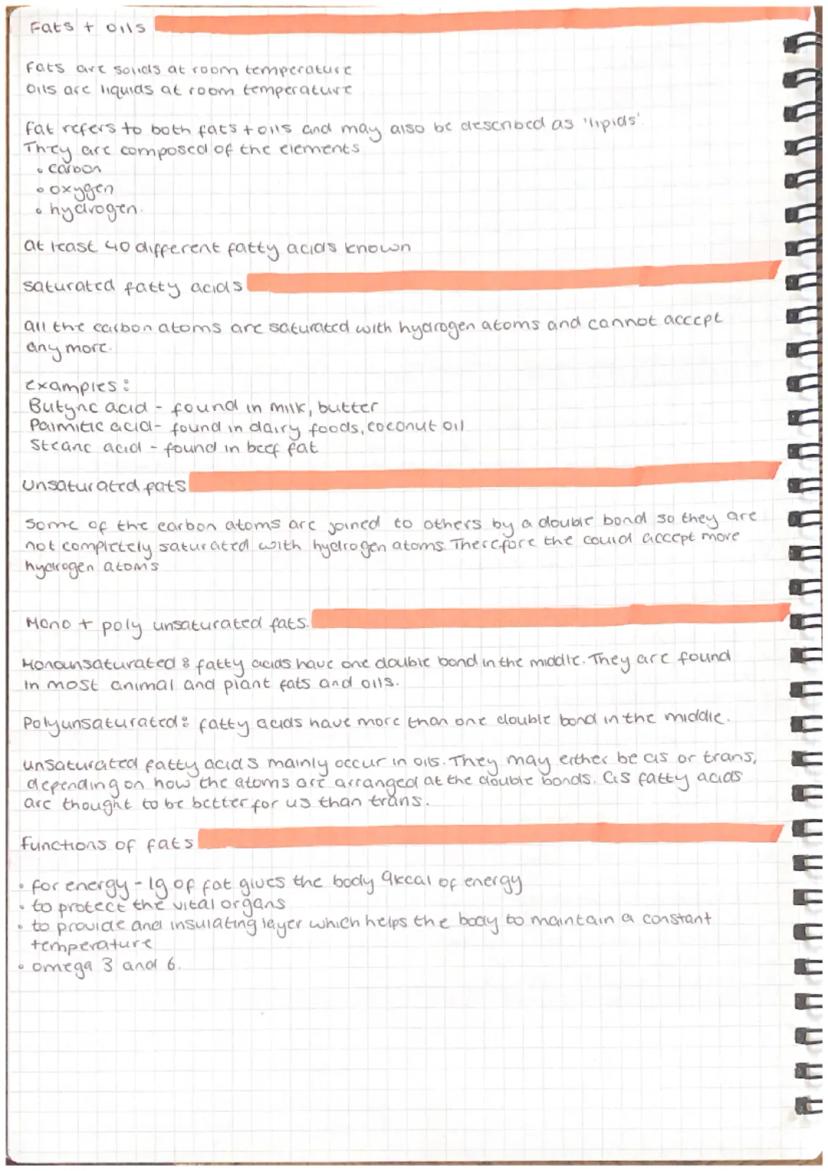 Fats + oils
Fats are solids at room temperature
Oils are liquids at room temperature
Fat refers to both fats + oils and may also be described as 'lipids'.
They are composed of the elements
• carbon
• oxygen
• hydrogen.
at least 40 different fatty acids known
saturated fatty acids
all the carbon atoms are saturated with hydrogen atoms and cannot accept
any more.
examples:
Butyric acid - found in milk, butter
Palmitic acid - found in dairy foods, coconut oil
Stearic acid - found in beef fat
Unsaturated fats
Some of the carbon atoms are joined to others by a double bond so they are
not completely saturated with hydrogen atoms. Therefore the could accept more
hydrogen atoms
Mono + poly unsaturated fats.
Monounsaturated: fatty acids have one double bond in the middle. They are found
in most animal and plant fats and oils.
Polyunsaturated: fatty acids have more than one double bond in the middle.
unsaturated fatty acids mainly occur in oils. They may either be cis or trans,
depending on how the atoms are arranged at the double bonds. Cis fatty acids
are thought to be better for us than trans.
Functions of fats
• for energy - 1g of fat gives the body 9kcal of energy
• to protect the vital organs
• to provide and insulating layer which helps the body to maintain a constant
temperature
• omega 3 and 6.